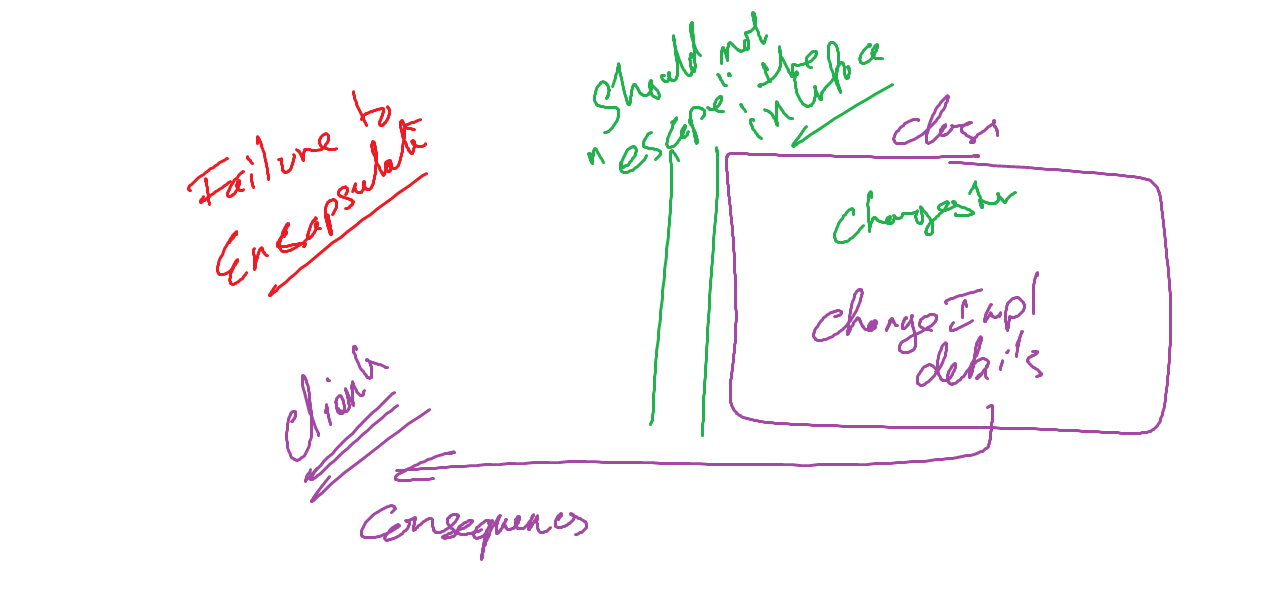 Failure to
Encapsulate
Should not
escape the
class
change Impl
details
Client
Consequences